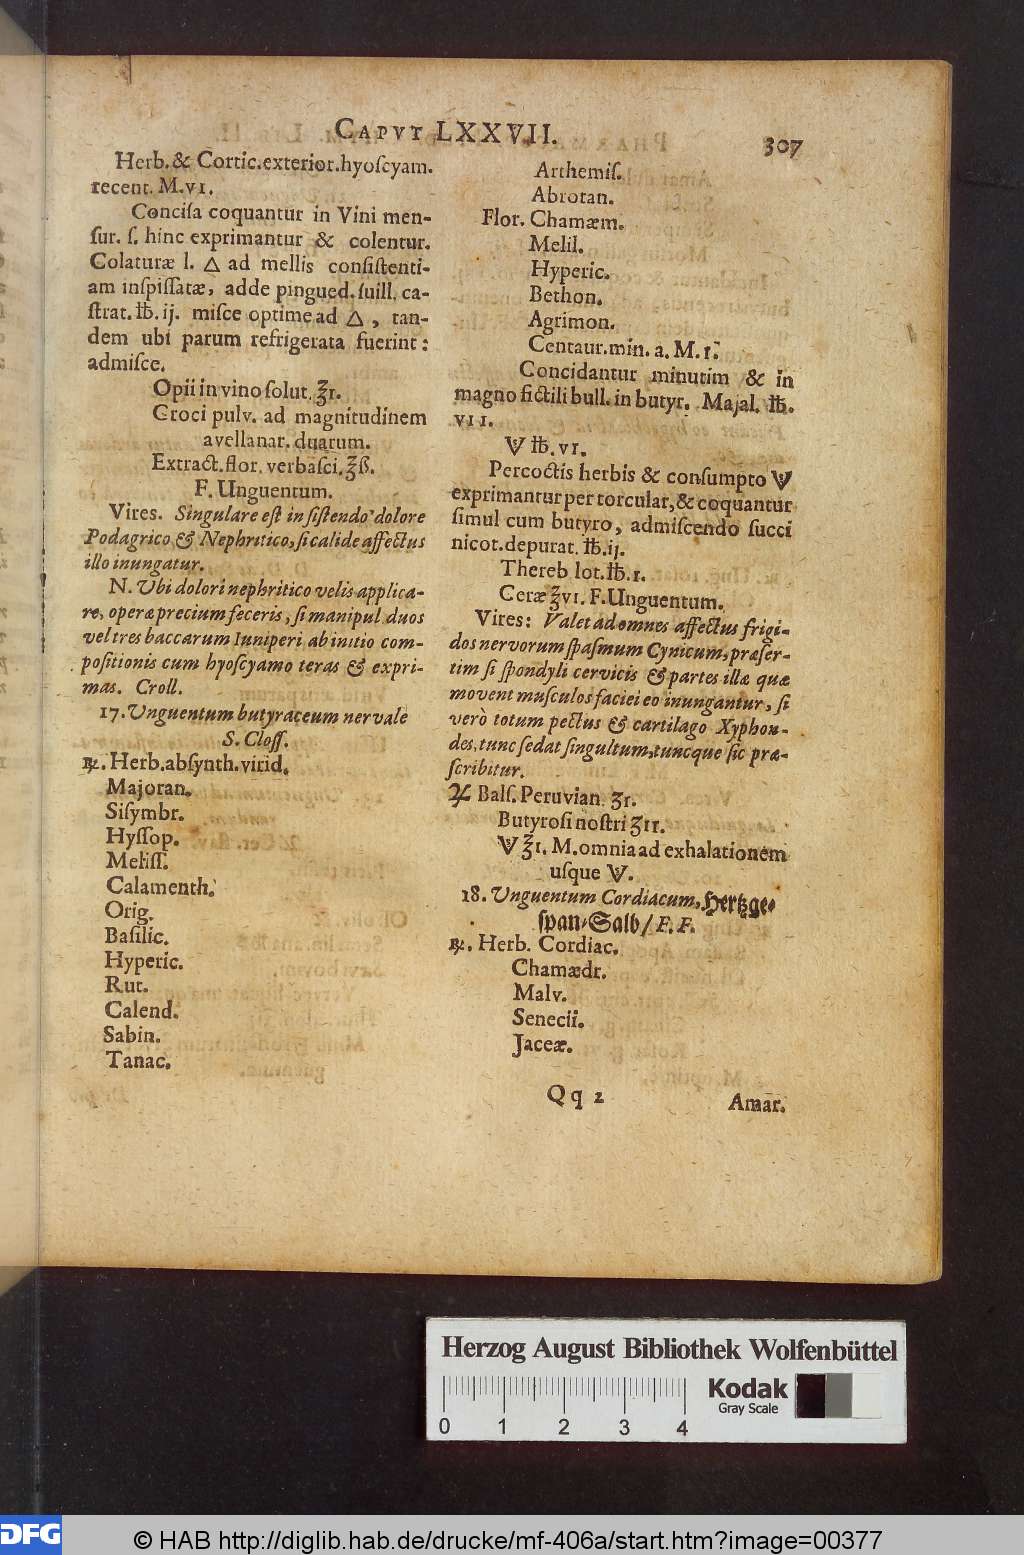 CAPVT LXXVII. 307
Herb. & Cortic. exterior. hyoſcyam.
recent. M. vı.
Conciſa coquantur in Vini men-
ſur. ſ. hinc exprimantur & colentur.
Colaturæ l. △ ad mellis conſiſtenti-
am inſpiſſatæ, adde pingued. ſuill. ca-
ſtrat. ℔. ij. miſce optime ad △, tan-
dem ubi parum refrigerata fuerint:
admiſce.
Opii in vino ſolut. ℥ı.
Croci pulv. ad magnitudinem
avellanar. duarum.
Extract. flor. verbaſci. ℥ß.
F. Unguentum.
Vires. Singulare eſt in ſiſtendo dolore
Podagrico & Nephritico, ſi calide affectus
illo inungatur.
N. Ubi dolori nephritico velis applica-
re, operæ precium feceris, ſi manipul duos
vel tres baccarum Iuniperi ab initio com-
poſitionis cum hyoſcyamo teras & expri-
mas. Croll.
17. Unguentum butyraceum nervale
S. Cloſſ.
℞. Herb. abſynth. virid.
Majoran.
Siſymbr.
Hyſſop.
Meliſſ.
Calamenth.
Orig.
Baſilic.
Hyperic.
Rut.
Calend.
Sabin.
Tanac.
Arthemiſ.
Abrotan.
Flor. Chamæm.
Melil.
Hyperic.
Bethon.
Agrimon.
Centaur. min. a. M. ı.
Concidantur minutim & in
magno fictili bull. in butyr. Majal. ℔.
vıı.
🜄 ℔. vı.
Percoctis herbis & conſumpto 🜄
exprimantur per torcular, & coquantur
ſimul cum butyro, admiſcendo ſucci
nicot. depurat. ℔. ij.
Thereb lot. ℔. ı.
Ceræ ℥vı. F. Unguentum.
Vires: Valet ad omnes affectus frigi-
dos nervorum ſpaſmum Cynicum, præſer-
tim ſi ſpondyli cervicis & partes illæ quæ
movent muſculos faciei eo inungantur, ſi
verò totum pectus & cartilago Xyphon-
des, tunc ſedat ſingultum, tuncque ſic præ-
ſcribitur.
♃ Balſ. Peruvian. ʒı.
Butyroſi noſtri ʒıı.
🜄 ℥ı. M. omnia ad exhalationem
uſque 🜄.
18. Unguentum Cordiacum, Hertzge-
ſpan-Salb/ F. F.
℞. Herb. Cordiac.
Chamædr.
Malv.
Senecii.
Jaceæ.
Qq 2 Amar.
Herzog August Bibliothek Wolfenbüttel
Kodak
Gray Scale
0 1 2 3 4
DFG
© HAB http://diglib.hab.de/drucke/mf-406a/start.htm?image=00377